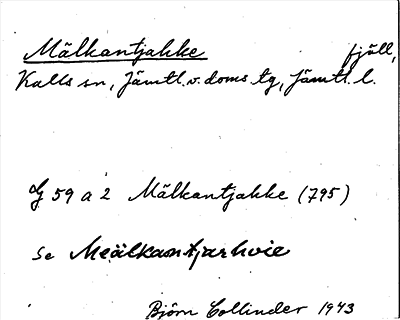 Mälkantjakke fjäll,
Kalls sn, Jämtl. v. doms. tg, Jämtl. l.
G 59 a 2 Mälkantjakke (795)
Se Meälkantjarhvie
Björn Collinder 1943